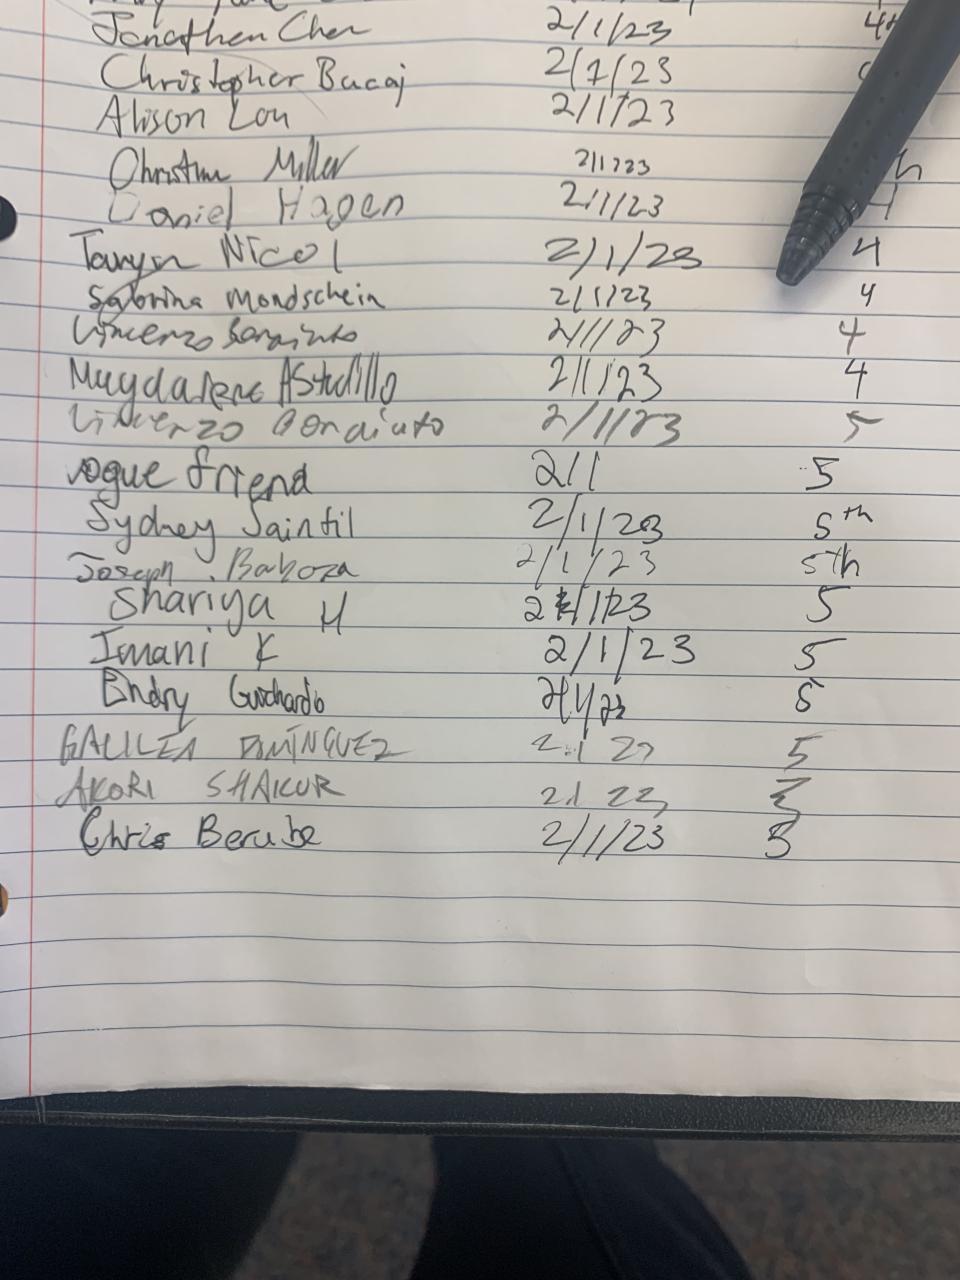 Jonathan Chen 2/1/23
Christopher Bucaj 2/1/23
Alison Lou 2/1/23
Christine Miller 2/1/23 h
Daniel Hagen 2/1/23 4
Taryn Nicol 2/1/23 4
Sabrina Mondschein 2/1/23 4
Vincenzo 2/1/23 4
Magdalena Astudillo 2/1/23 4
Vincenzo 2/1/23 5
vogue friend 2/1 5
Sydney Saintil 2/1/23 5th
Joseph Barboza 2/1/23 5th
Shariya H 2/1/23 5
Imani K 2/1/23 5
Endry Guichardo 2/1/23 5
GALILEA DOMÍNGUEZ 2 1 23 5
AKORI SHAKUR 2 1 23
Chris Berube 2/1/23 5